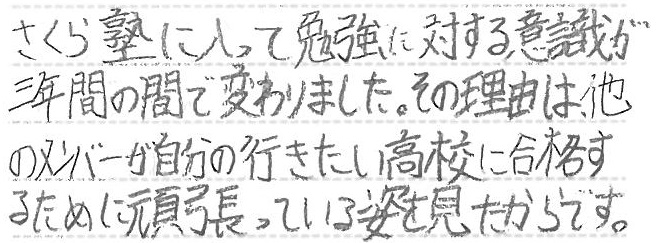 さくら塾に入って勉強に対する意識が
三年間の間で変わりました。その理由は、他
のメンバーが自分の行きたい高校に合格す
るために頑張っている姿を見たからです。